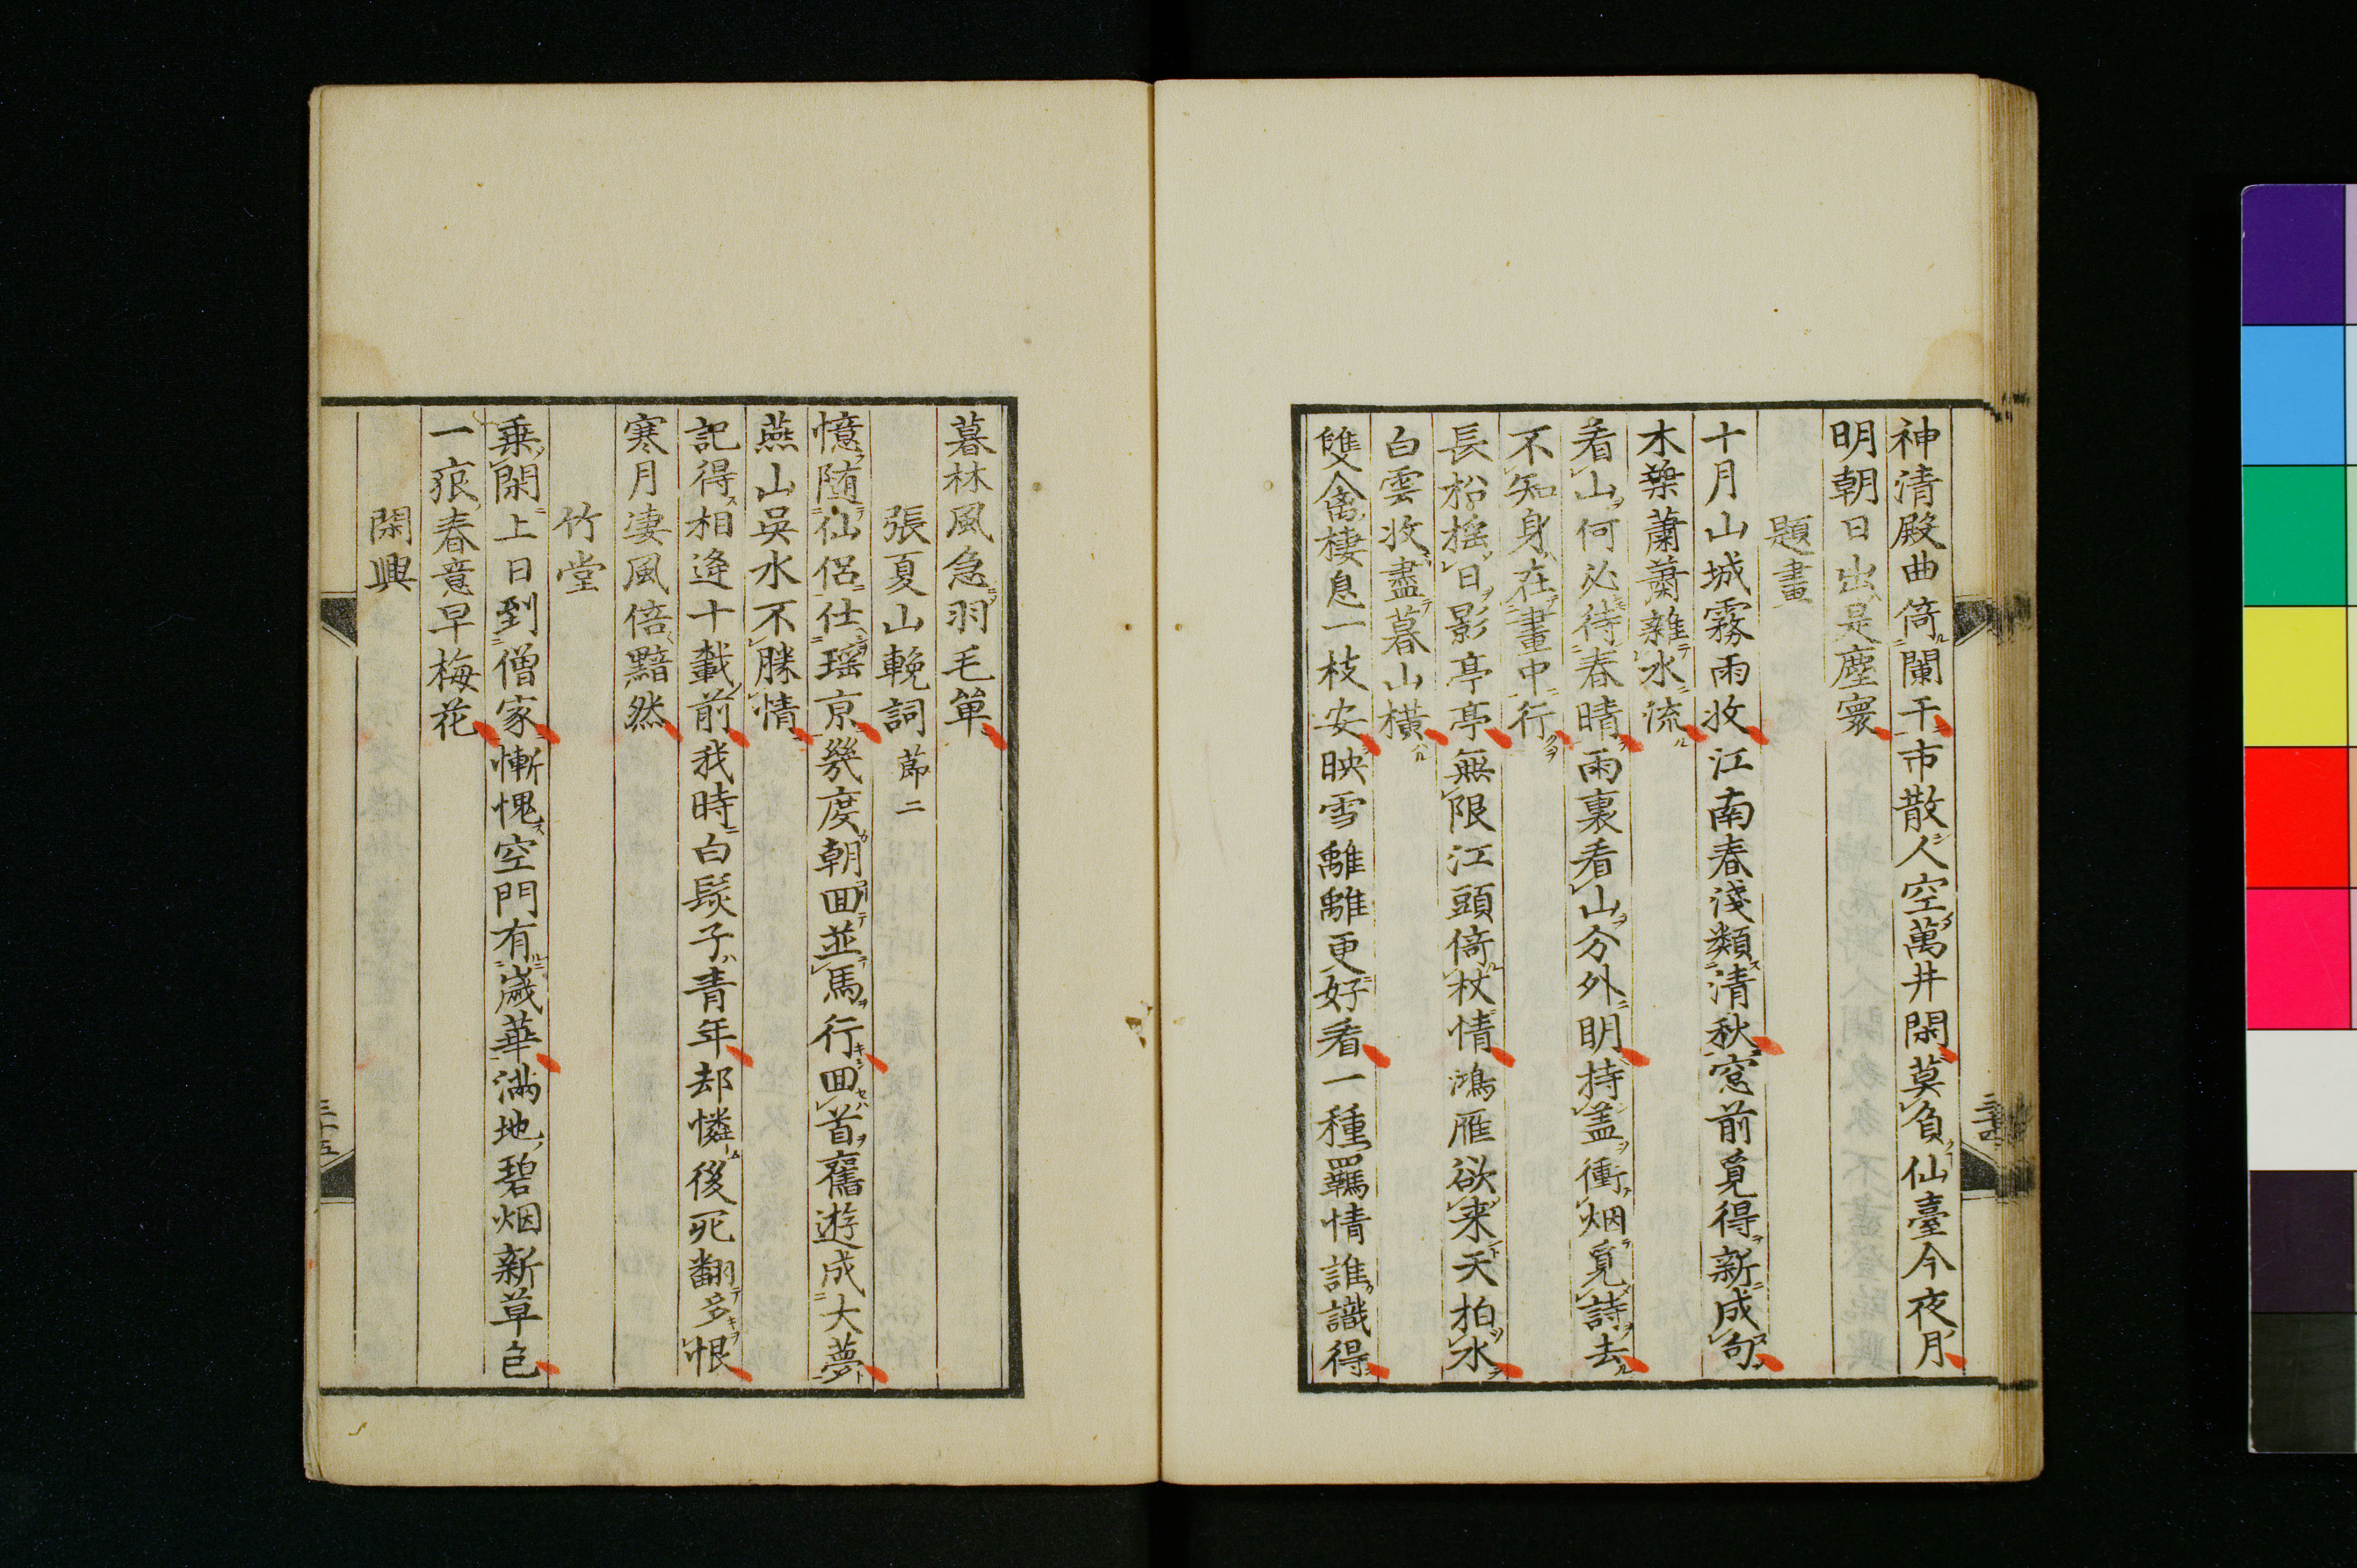 神清殿曲倚闌干市散人空萬井閑莫負仙臺今夜月
明朝日出是塵寰
題畫
十月山城霧雨收江南春淺類清秋窓前覓得新成句
木葉蕭蕭雜水流
看山何必待春晴雨裏看山分外明持盖衝烟覓詩去
不知身在畫中行
長松搖日影亭亭無限江頭倚杖情鴻雁欲来天拍水
白雲收盡暮山橫
雙禽棲息一枝安映雪離離更好看一種羈情誰識得
三十四
暮林風急羽毛單
張夏山輓詞 節二
憶随仙侶仕瑶京幾度朝囬並馬行囬首舊遊成大夢
燕山吳水不勝情
記得相逄十載前我時白髮子青年却憐後死翻多恨
寒月凄風倍黯然
竹堂
乗閑上日到僧家慚愧空門有歲華満地碧烟新草色
一痕春意早梅花
閑興
三十五